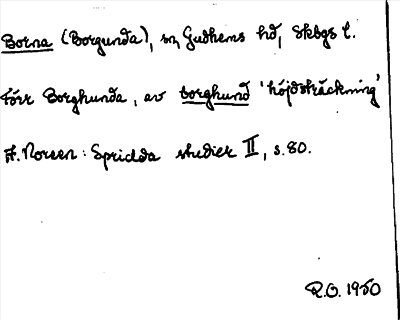 Borna (Borgunda), sn, Gudhems hd, Skbgs l.
förr Borghunda, av borghund 'höjdsträckning'
A. Noreen: Spridda studier II, s. 80.
R.O. 1950